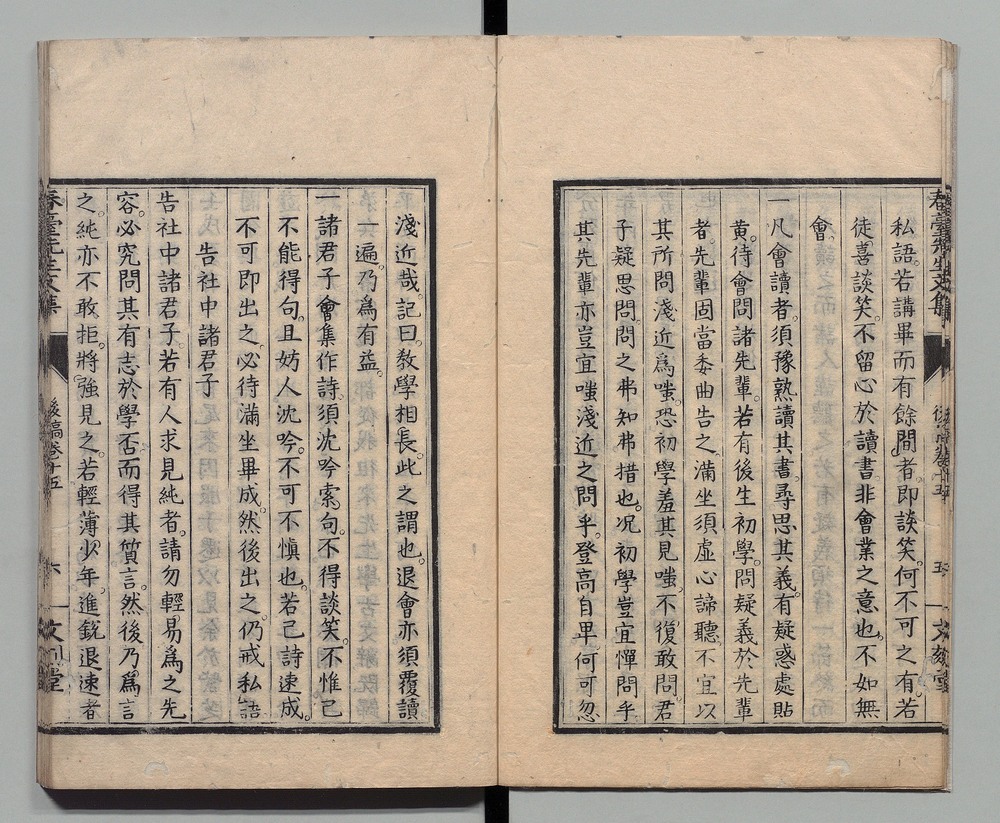 私語。若講畢而有餘間者、即談笑。何不可之有。若
徒喜談笑。不留心於讀書。非會業之意也。不如無
會。
一凡會讀者。須豫熟讀其書。尋思其義。有疑惑處貼
黄。待會問諸先輩。若有後生初學。問疑義於先輩
者。先輩固當委曲告之。滿坐須虛心諦聽。不宜以
其所問淺近爲嗤。恐初學羞其見嗤。不復敢問。君
子疑思問。問之弗知弗措也。况初學豈宜憚問乎
其先輩亦豈宜嗤淺近之問乎。登高自卑。何可忽
淺近哉。記曰。教學相長。此之謂也。退會亦須覆讀
一遍。乃爲有益。
一諸君子會集作詩。須沈吟索句。不得談笑。不惟己
不能得句。且妨人沈吟。不可不愼也。若己詩速成。
不可即出之。必待滿坐畢成。然後出之。仍戒私語
告社中諸君子
告社中諸君子。若有人求見純者。請勿輕易爲之先
容。必究問其有志於學否。而得其質言。然後乃爲言
之。純亦不敢拒。將強見之。若輕薄少年。進銳退速者
春臺先生文集
後稿卷十五
五
春臺先生文集
後稿卷十五
六